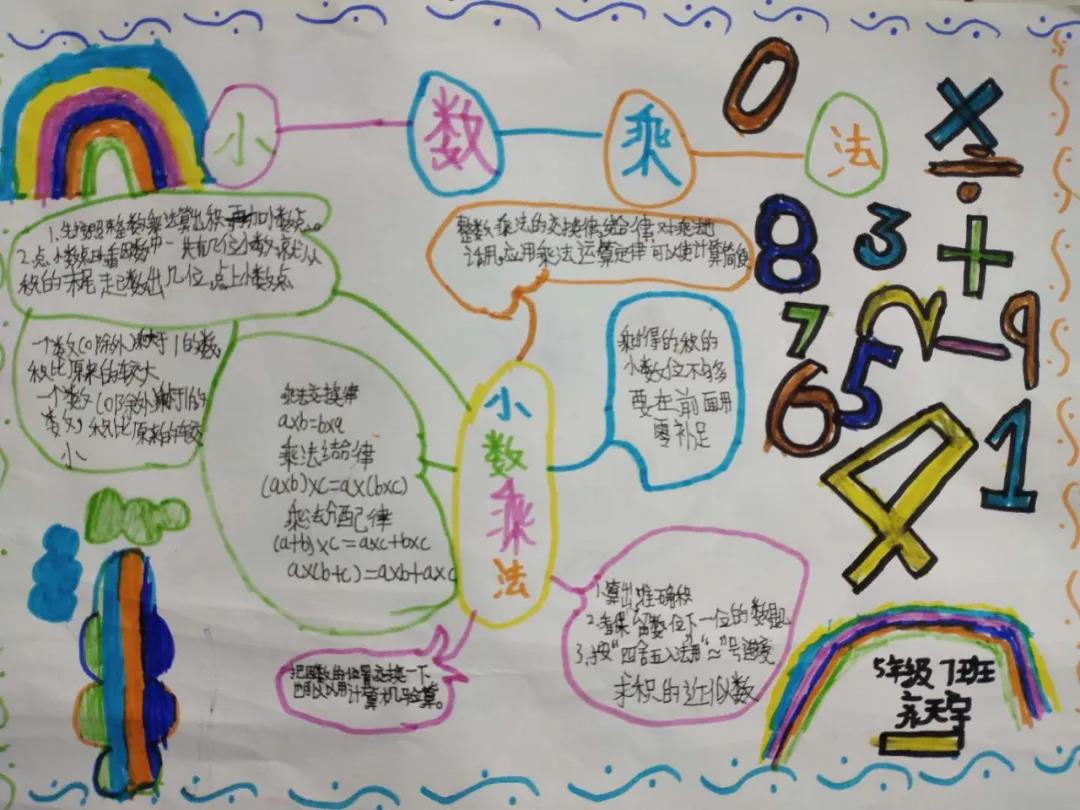 小 数 乘 法
0
× ÷
8 3 +
7 2 - 9
6 5
4 1
1.先按照整数乘法算出积再加小数点。
2.点小数点时看因数中一共有几位小数,就从
积的末尾起数出几位,点上小数点
整数乘法的交换律,结合律,对乘法
适用,应用乘法运算定律可以使计算简便
一个数(0除外)乘大于1的数,
积比原来的较大
一个数(0除外)
数,积比原来的较
小
乘法交换律
a×b=b×a
乘法结合律
(a×b)×c=a×(b×c)
乘法分配律
(a+b)×c=a×c+b×c
a×(b+c)=a×b+a×c
小
数
乘
法
乘得的积的
小数位不够
要在前面用
零补足
1.算出准确积
2.看保留数位下一位的数
3.按"四舍五入法用"≈"号连接
求积的近似数
把因数的位置交换一下
也可以用计算机验算。
5年级 7班
天宇